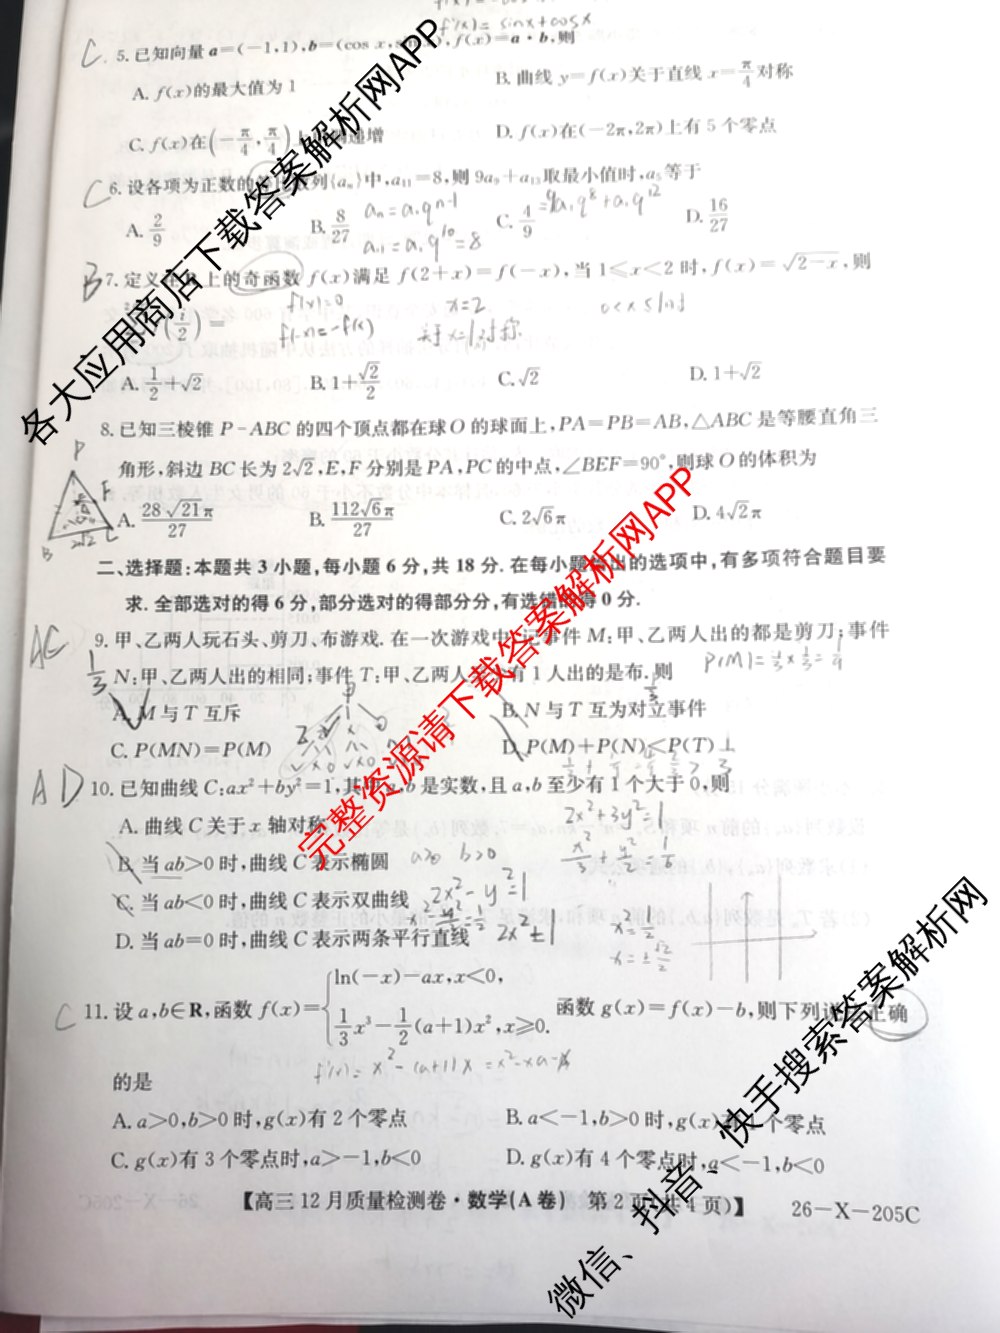 f'(x)= sinx+cosx
C 5.已知向量 a=(-1,1),b=(cos x,sin x),f(x)=a·b,则
A. f(x)的最大值为 1
B. 曲线 y=f(x)关于直线 x=π/4对称
C. f(x)在(-π/4,π/4)上 递增
D. f(x)在(-2π,2π)上有 5 个零点
C 6.设各项为正数的 数列{aₙ}中,a₁₁=8,则 9a₉+a₁₃取最小值时,a 等于
A. 2/9
B. 8/27
C. 4/9
D. 16/27
aₙ=a₁qⁿ⁻¹
=9a₁q⁸+a₁q¹²
a₁₁=a₁q¹⁰=8
B 7.定义在 R 上的奇函数 f(x)满足 f(2+x)=f(-x),当 1≤x<2 时,f(x)=√2-x,则
(i/2)=
f(x)=0
f(-x)=-f(x)
x=2
关于x=1对称
A. 1/2+√2
B. 1+√2/2
C. √2
D. 1+√2
8.已知三棱锥 P-ABC 的四个顶点都在球 O 的球面上,PA=PB=AB,△ABC 是等腰直角三
角形,斜边 BC 长为 2√2,E,F 分别是 PA,PC 的中点,∠BEF=90°,则球 O 的体积为
A. 28√21π/27
B. 112√6π/27
C. 2√6π
D. 4√2π
P
F
B
C
2√2
二、选择题:本题共 3 小题,每小题 6 分,共 18 分.在每小题给出的选项中,有多项符合题目要
求.全部选对的得 6 分,部分选对的得部分分,有选错的得 0 分.
AC 9.甲、乙两人玩石头、剪刀、布游戏.在一次游戏中,记事件 M:甲、乙两人出的都是剪刀;事件
N:甲、乙两人出的相同;事件 T:甲、乙两人 有 1 人出的是布.则
P(M)=1/3×1/3=1/9
1/3
A. M 与 T 互斥
B. N 与 T 互为对立事件
C. P(MN)=P(M)
D. P(M)+P(N)<P(T)
AD 10.已知曲线 C:ax²+by²=1,其中 a,b 是实数,且 a,b 至少有 1 个大于 0,则
A. 曲线 C 关于 x 轴对称
B. 当 ab>0 时,曲线 C 表示椭圆
C. 当 ab<0 时,曲线 C 表示双曲线
D. 当 ab=0 时,曲线 C 表示两条平行直线
a>0 b>0
2x²+3y²=1
2x²-y²=1
x²=1/2
x=±√2/2
C 11.设 a,b∈R,函数 f(x)={ln(-x)-ax,x<0,
1/3x³-1/2(a+1)x²,x≥0.
函数 g(x)=f(x)-b,则下列 正确
的是
f'(x)=x²-(a+1)x=x²-xa-x
A. a>0,b>0 时,g(x)有 2 个零点
B. a<-1,b>0 时,g(x)有 个零点
C. g(x)有 3 个零点时,a>-1,b<0
D. g(x)有 4 个零点时,a<-1,b<0
【高三 12 月质量检测卷·数学(A 卷) 第 2 页(共 4 页)】
26-X-205C
各大应用商店下载答案解析网APP
完整资源请下载答案解析网APP
微信、抖音、快手搜索答案解析网